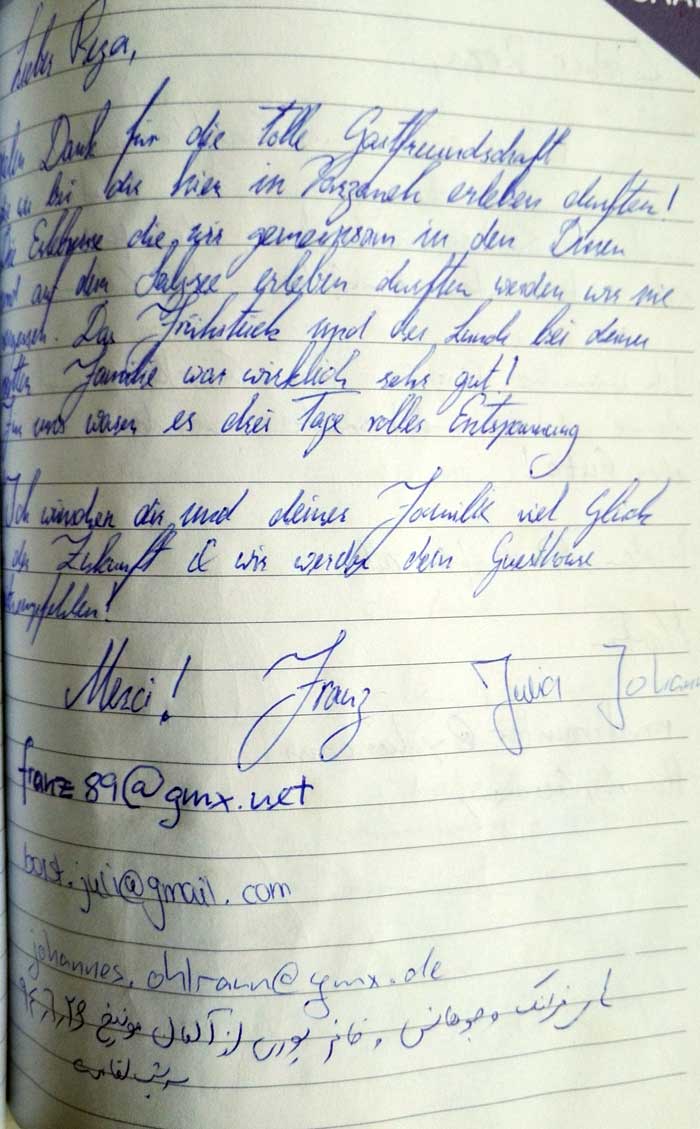 Lieber Reza,
Dank für die tolle Gastfreundschaft
wir bei dir hier in Varzaneh erleben durften!
Die Erlebnisse die wir gemeinsam in den Dünen
und auf dem Salzsee erleben durften werden wir nie
vergessen. Das Frühstück und der Lunch bei deiner
Familie war wirklich sehr gut!
Für uns waren es drei Tage voller Entspannung
Ich wünschen dir und deiner Familie viel Glück
Zukunft & wir werden dein Guesthouse
Merci! Franz Julia Johann
franz89@gmx.net
borst.juli@gmail.com
johannes.ohlraun@gmx.de
فرانک و جوهانس و خانم از آلمان مونیخ
سه شب اقامت